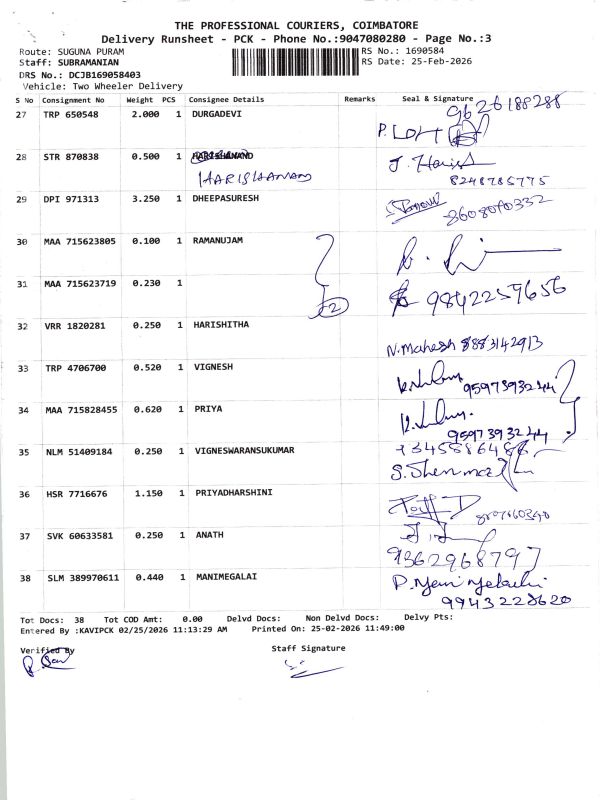 THE PROFESSIONAL COURIERS, COIMBATORE
Delivery Runsheet - PCK - Phone No.:9047080280 - Page No.:3
Route: SUGUNA PURAM RS No.: 1690584
Staff: SUBRAMANIAN RS Date: 25-Feb-2026
DRS No.: DCJB169058403
Vehicle: Two Wheeler Delivery
S No Consignment No Weight PCS Consignee Details Remarks Seal & Signature
9626188288
27 TRP 650548 2.000 1 DURGADEVI
28 STR 870838 0.500 1 HARISHANAND J. Harish
HARISHANAND
8248785775
29 DPI 971313 3.250 1 DHEEPASURESH
8608070332
30 MAA 715623805 0.100 1 RAMANUJAM
31 MAA 715623719 0.230 1
2 9842259656
32 VRR 1820281 0.250 1 HARISHITHA
N. Mahesh 8883142913
33 TRP 4706700 0.520 1 VIGNESH
9597393244
34 MAA 715828455 0.620 1 PRIYA
9597393244
35 NLM 51409184 0.250 1 VIGNESWARANSUKUMAR
36 HSR 7716676 1.150 1 PRIYADHARSHINI
37 SVK 60633581 0.250 1 ANATH
9362968797
38 SLM 389970611 0.440 1 MANIMEGALAI
9943228620
Tot Docs: 38 Tot COD Amt: 0.00 Delvd Docs: Non Delvd Docs: Delvy Pts:
Entered By :KAVIPCK 02/25/2026 11:13:29 AM Printed On: 25-02-2026 11:49:00
Verified By Staff Signature